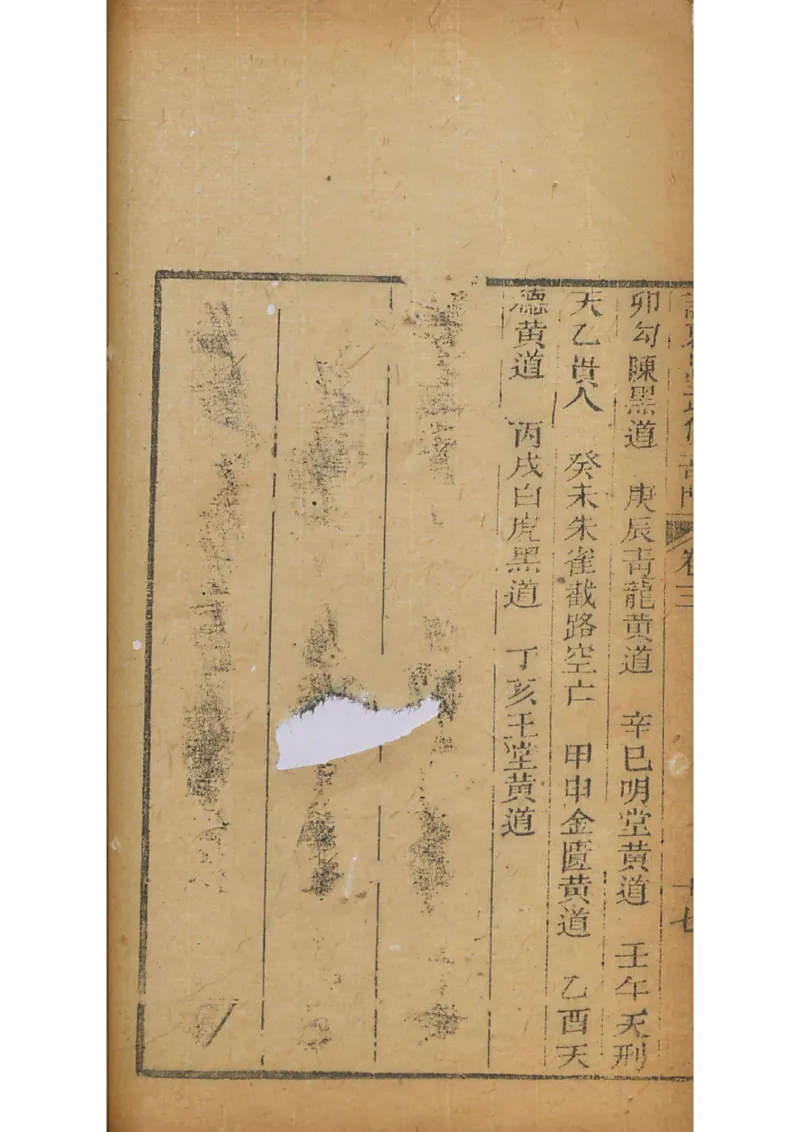 卷三
十七
卯勾陳黑道　庚辰青龍黃道　辛巳明堂黃道　壬午天刑
天乙貴人　癸未朱雀截路空亡　甲申金匱黃道　乙酉天
德黃道　丙戌白虎黑道　丁亥玉堂黃道